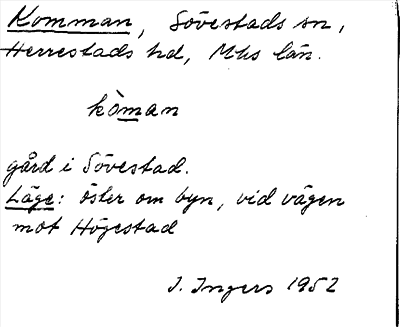 Komman, Sövestads sn,
Herrestads hd, Mhs län.
kòman
gård i Sövestad.
Läge: öster om byn, vid vägen
mot Högestad
I. Ingers 1952